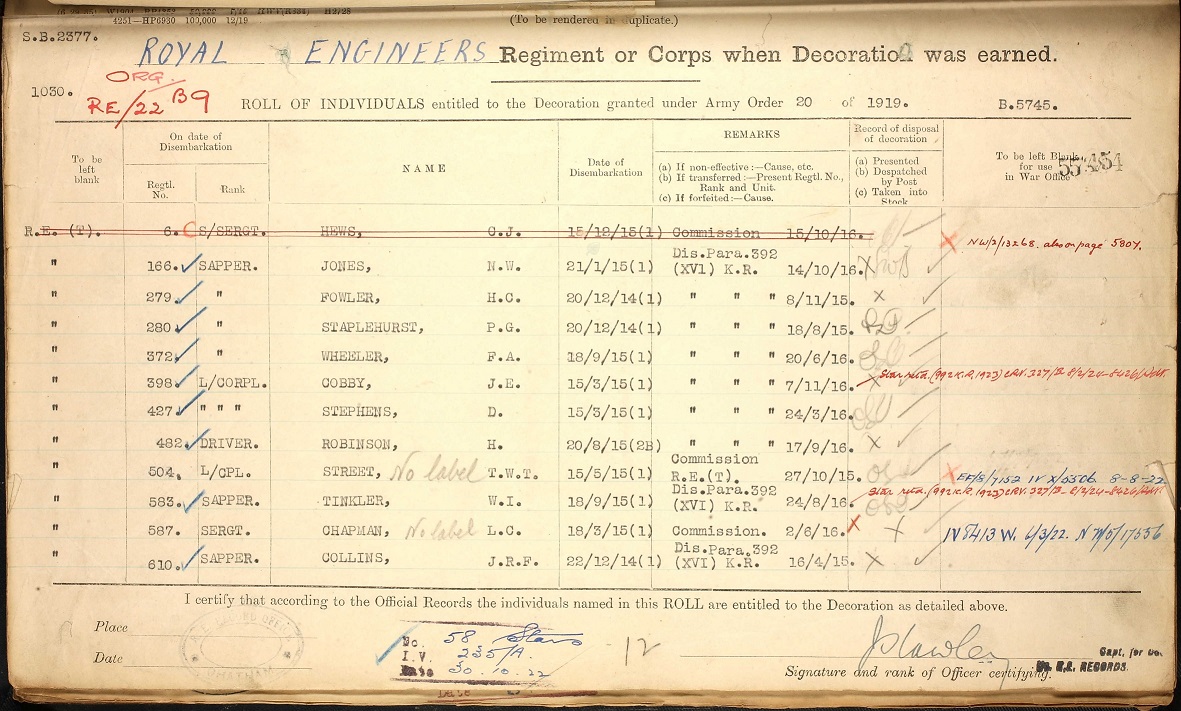 4251—HP6930 100,000 12/19
(To be rendered in duplicate.)
S.B.2377.
ROYAL ENGINEERS Regiment or Corps when Decoration was earned.
ORG.
RE/22 B9
1030. ROLL OF INDIVIDUALS entitled to the Decoration granted under Army Order 20 of 1919. B.5745.
To be left blank
On date of Disembarkation
Regtl. No.
Rank
NAME
Date of Disembarkation
REMARKS
(a) If non-effective :—Cause, etc.
(b) If transferred :—Present Regtl. No., Rank and Unit.
(c) If forfeited :—Cause.
Record of disposal of decoration
(a) Presented
(b) Despatched by Post
(c) Taken into Stock
To be left Blank for use in War Office
R.E. (T). 6. S/SERGT. HEWS, C.J. 15/12/15(1) Commission 15/10/16. X NW/2/13268. also on page 5807.
" 166. SAPPER. JONES, N.W. 21/1/15(1) Dis.Para.392 (XVI) K.R. 14/10/16. X
" 279. " FOWLER, H.C. 20/12/14(1) " " " 8/11/15. X
" 280. " STAPLEHURST, P.G. 20/12/14(1) " " " 18/8/15.
" 372. " WHEELER, F.A. 18/9/15(1) " " " 20/6/16.
" 398. L/CORPL. COBBY, J.E. 15/3/15(1) " " " 7/11/16. X Star retd. (992 K.R. 1923)
" 427. " " " STEPHENS, D. 15/3/15(1) " " " 24/3/16.
" 482. DRIVER. ROBINSON, H. 20/8/15(2B) " " " 17/9/16. X
" 504. L/CPL. STREET, No label T.W.T. 15/5/15(1) Commission R.E.(T). 27/10/15. X EF/8/7152 IV X/5506 8-8-22
" 583. SAPPER. TINKLER, W.I. 18/9/15(1) Dis.Para.392 (XVI) K.R. 24/8/16. Star retd. (992 K.R. 1923)
" 587. SERGT. CHAPMAN, No label L.C. 18/3/15(1) Commission. 2/6/16. X X IV 8413 W. 6/3/22.
" 610. SAPPER. COLLINS, J.R.F. 22/12/14(1) Dis.Para.392 (XVI) K.R. 16/4/15. X
I certify that according to the Official Records the individuals named in this ROLL are entitled to the Decoration as detailed above.
Place
Date
No. 58 Stars
I.V. 235/A.
Date 30.10.22
-12
Capt. for
R.E. RECORDS.
Signature and rank of Officer certifying.